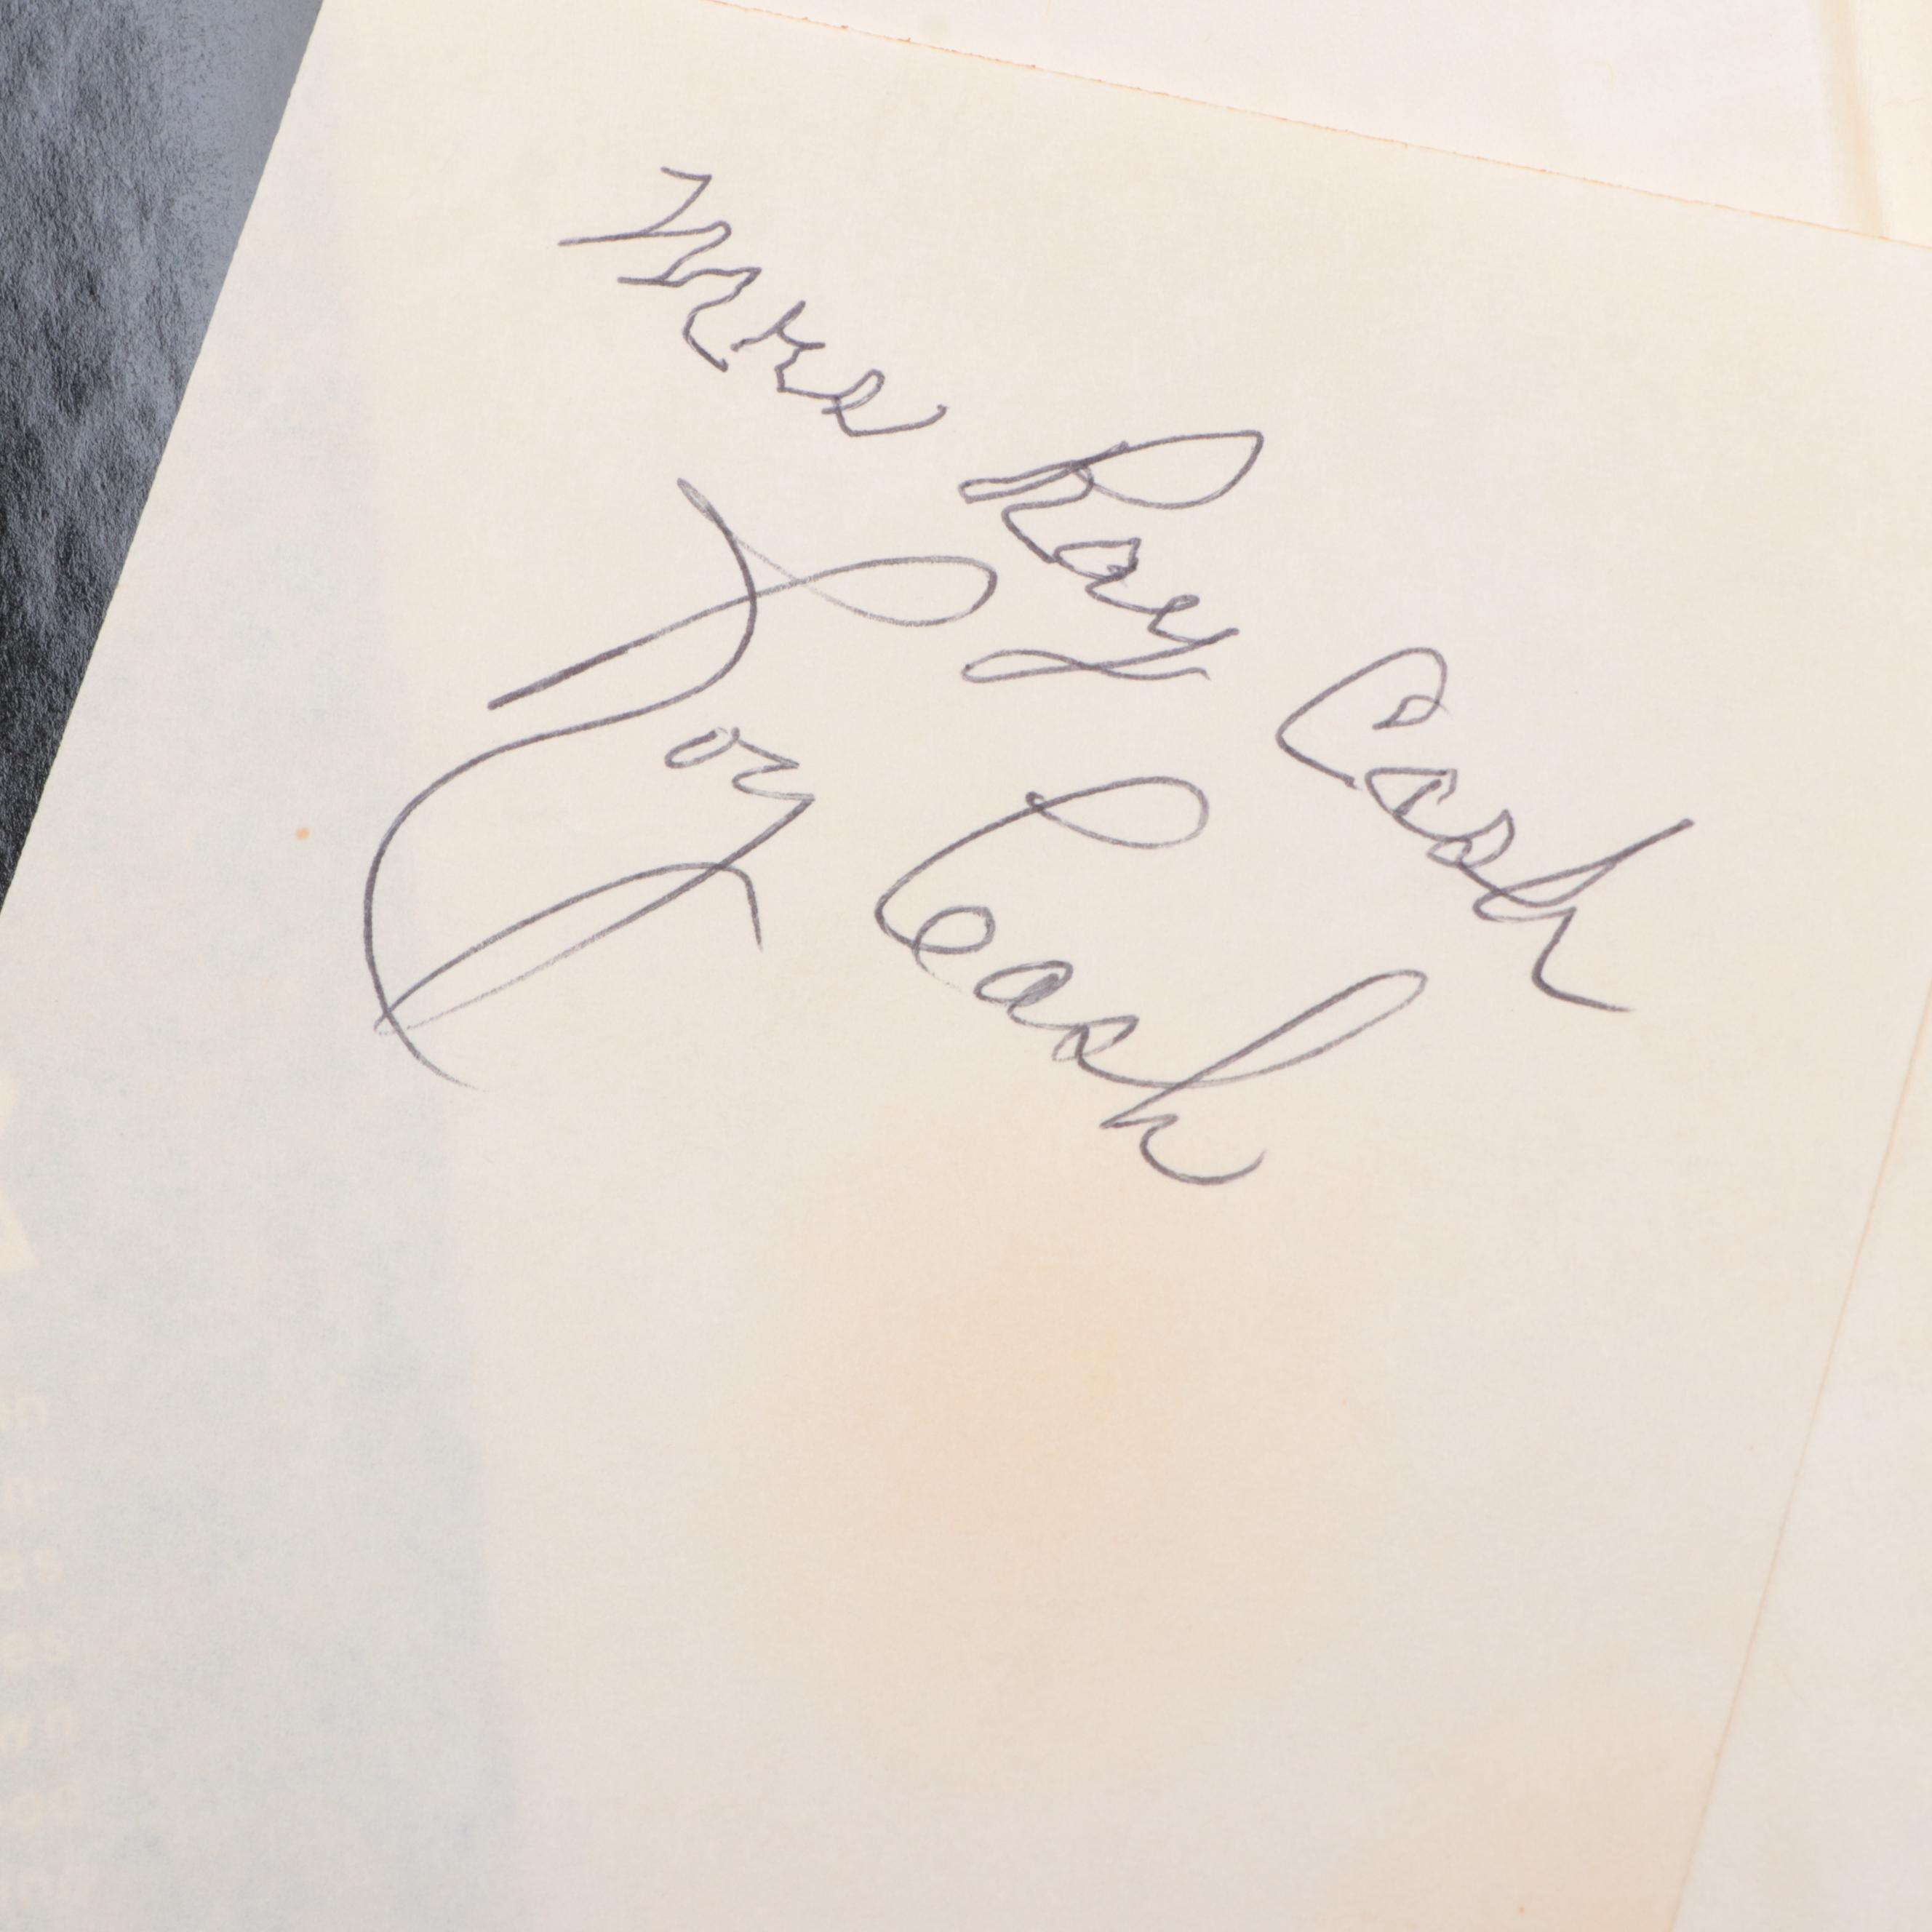 Mrs Ray Cash
Roy Cash